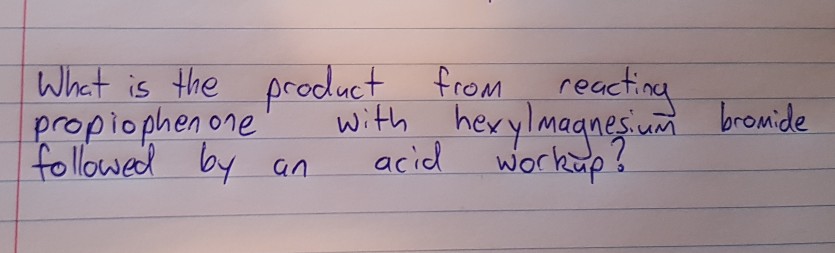 What is the product from reacting
propiophenone with hexylmagnesium bromide
followed by an acid workup?